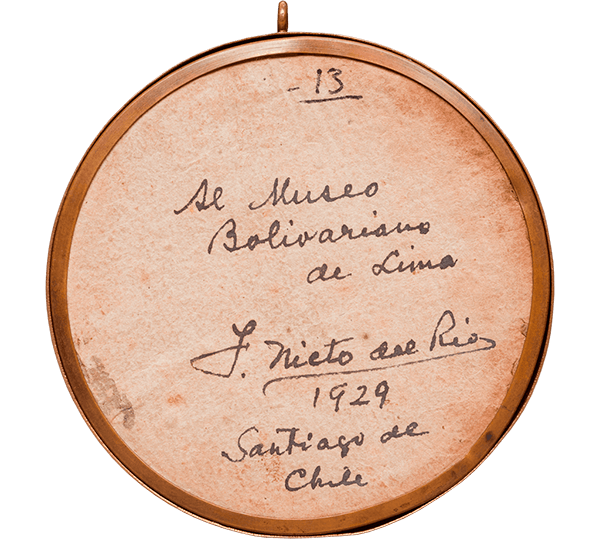 - 13
Al Museo
Bolivariano
de Lima
F. Nieto del Rio
1929
Santiago de
Chile